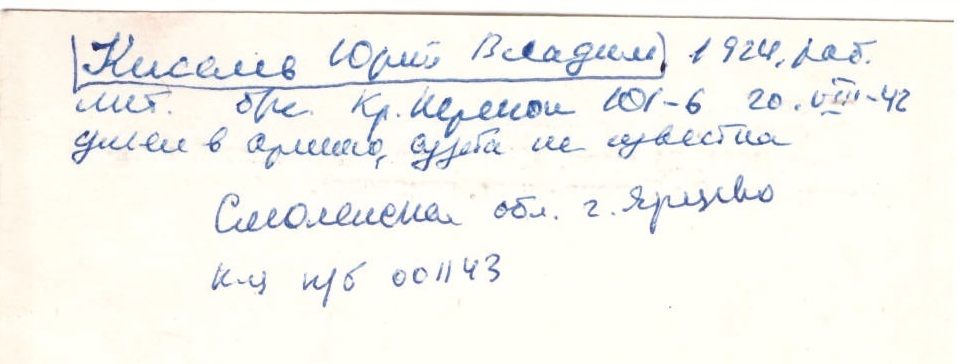 Киселев Юрий Владим. 1924, раб.
лит. бр. Кр. 101-6 20.VIII-42
ушел в армию, судьба не известна
Смоленская обл. г. Ярцево
к-ц п/б 001143